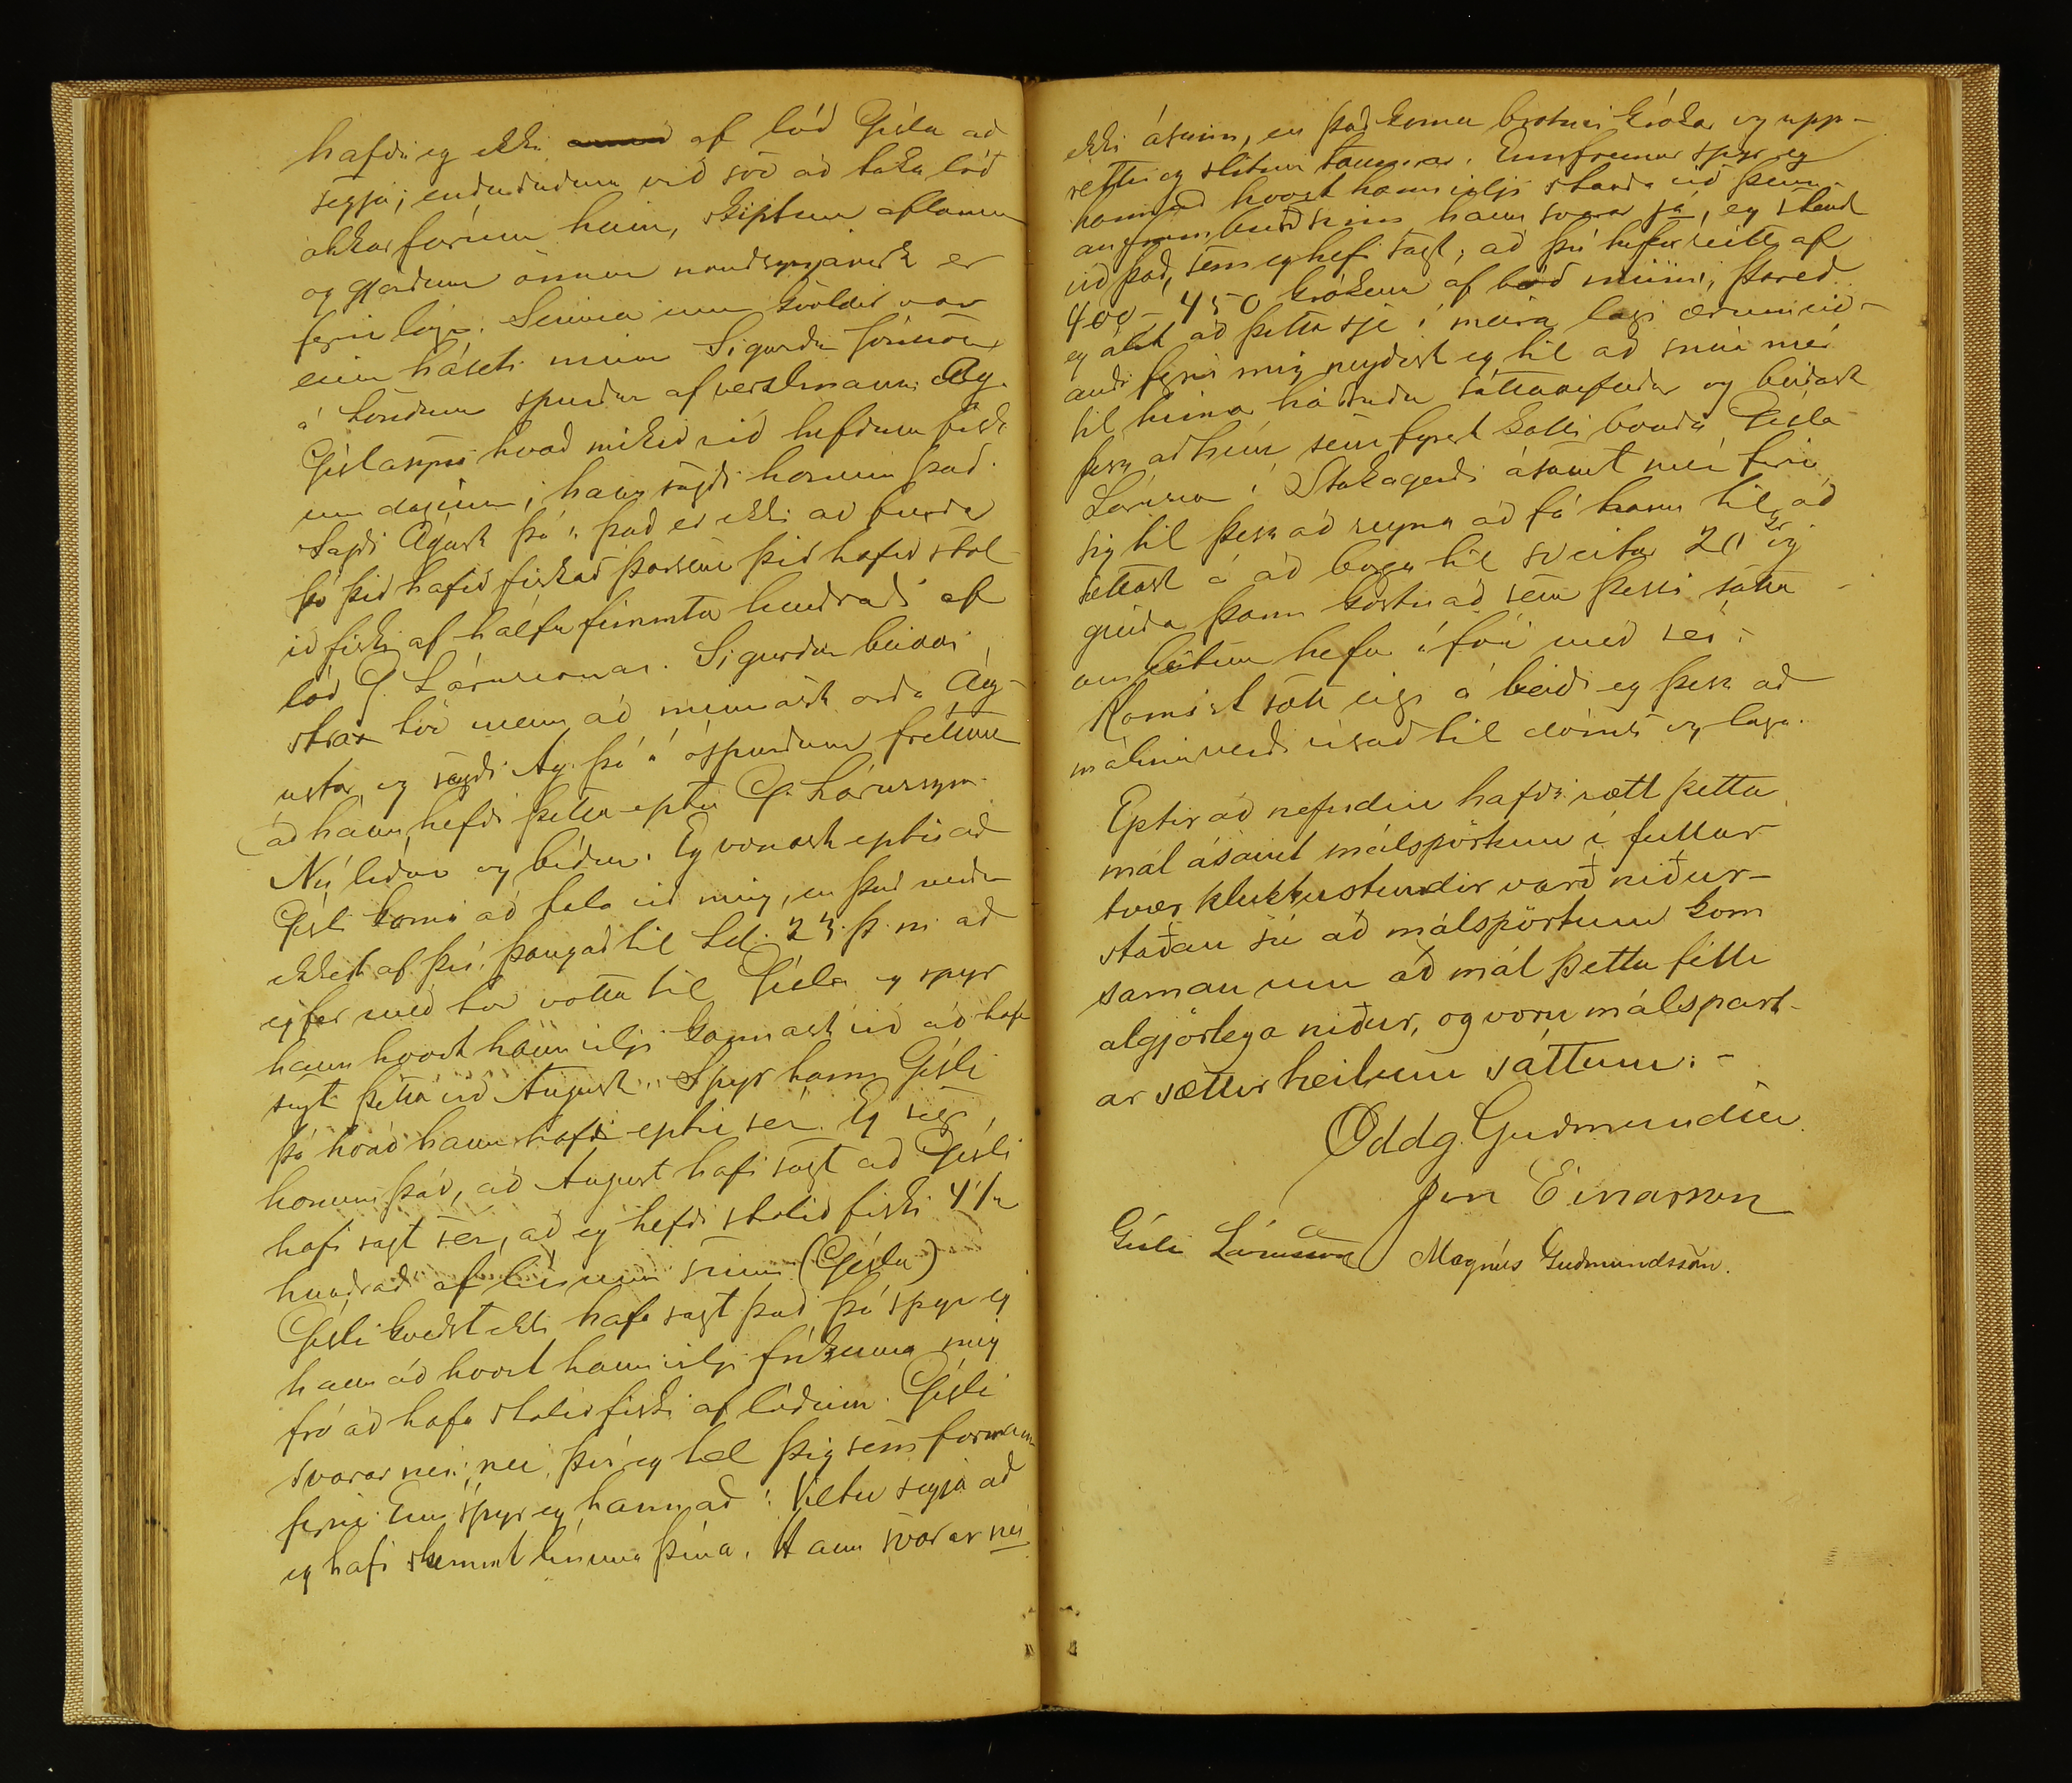 hafði eg ekki af lóð Gísla að
segja; enduðuðum við svo að taka lóð
okkar fórum heim, skiptum aflanum
og gjörðum önnur nauðsynjaverk er
fyrir lágu. Seinna um kvöldið var
einn háseti minn Sigurður Jónsson
á Löndum spurður af verzlmanni Ág.
Gíslasyni hvað mikið við hefðum fisk
um daginn; hann sagði honum það.
Sagði Ágúst þá "það er ekki að furða
þó þið hafið fiskað þar sem þið hafið stol
ið fiski af hálfu fimmta hundraði af
lóð G. Lárussonar. Sigurður beiddi
strax tvo menn að minnast orða Ág-
ústar, og sagði Ág. þá að óspurðum fréttum
að hann hefði þetta eptir G. Lárussyni.
Nú líður og bíður. Eg vonast eptir að
Gísli komi að tala við mig, en það verður
ekkert af því, þangað til ld. 23. þ. m. að
eg fer með tvo votta til Gísla og spyr
hann hvort hann vilji kannast við að hafa
sagt þetta við August. Spyr hann Gísli
þá hvað hann hafi eptir sér. Eg segi
honum það, að August hafi sagt að Gísli
hafi sagt sér, að eg hefði stolið fiski 4 1/2
hundrað af línunni sinni (Gísla)
Gísli kveðst ekki hafa sagt það. Þá spyr eg
hann að hvort hann vilji fríkenna mig
frá að hafa stolið fiski af lóðinni. Gísli
svarar nei, nei því eg tel þig sem formann
fyrir. Enn spyr eg hann að: Viltu segja að
eg hafi skemmt línuna þína. Hann svarar nei
ekki ásinn, en það komu brotnir krókar og upp-
réttir og slitnir taumar. Ennfremur spyr eg
hann að hvort hann vilji standa við þenn-
an framburð sinn hann svarar já, eg stend
við það, sem eg hef sagt, að þú hefur slitið af
400-450 krókum af lóð minni, Þareð
eg álít að þetta sje í meira lagi ærumeið-
andi fyrir mig neyðist eg til að snúa mér
til hinnar háttvirtu sáttanefndar og beiðast
þess að hún sem fyrst kalli bónda Gísla
Lárusson í Stakagerði ásamt mér fyrir
sig til þess að reyna að fá hann til að
sættast á að borga til sveitar 20 kr og
greiða þann kostnað sem þessi sátta
umleitun hefur í för með sér.
Komist sátt eigi á beiði eg þess að
málinu verði vísað til dóms og laga.
Eptir að nefndin hafði rætt þetta
mál ásamt málspörtum í fullar
tvær klukkustundir varð niður-
staðan sú að málspörtum kom
saman um að mál þetta félli
algjörlega niður, og voru málspart-
ar sættir heilum sáttum. -
Oddg. Guðmundsen
Jón Einarsson
Gísli Lárusson Magnús Guðmundsson.